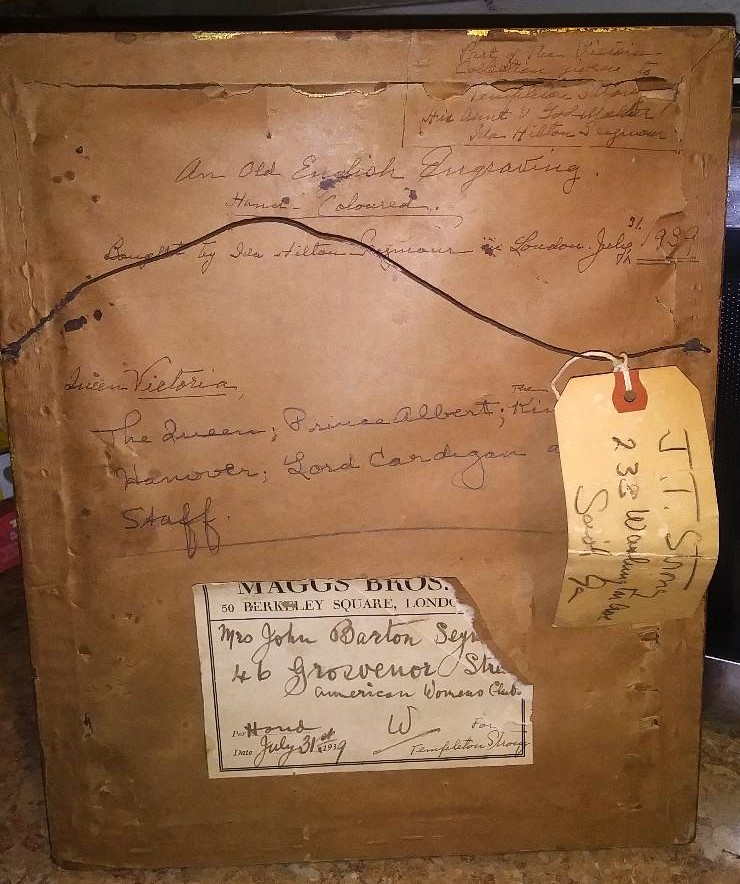 Part of the Victoria
Collection given to
Templeton Strong
His Aunt & God Mother
Ida Hilton Seymour
An Old English Engraving.
Hand-Coloured.
Bought by Ida Hilton Seymour in London. July 31. 1939
Queen Victoria,
The Queen; Prince Albert; The Kin
Hanover; Lord Cardigan a
Staff.
J.T. Strong
238 Washington Ave
Sav. Ga
MAGGS BROS.
50 BERKELEY SQUARE, LONDO
Mrs John Barton Seym
46 Grosvenor Stre
American Womens Club.
Per Hand W For
Date July 31st 1939 Templeton Strong